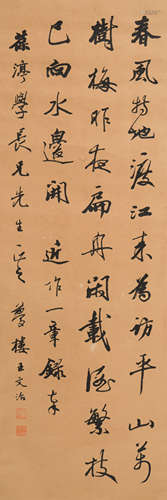 春風特地渡江來為訪平山萬
樹梅昨夜扁舟閒載酒繁枝
已向水邊開 近作一章錄奉
葆淳學長兄先生正之 夢樓王文治